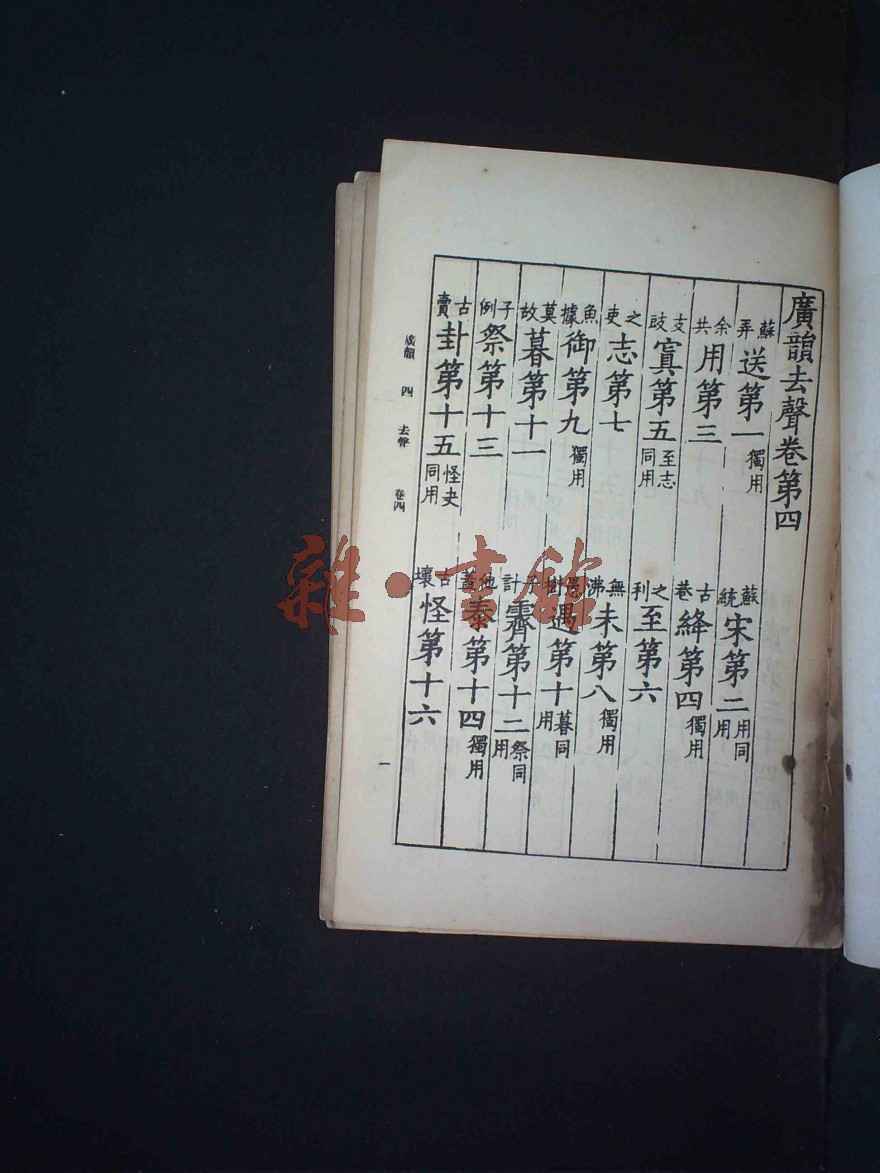 廣韻去聲卷第四
蘇弄送第一獨用
蘇統宋第二用同用
余共用第三
古巷絳第四獨用
支豉寘第五至志同用
之利至第六
之吏志第七
無沸未第八獨用
魚據御第九獨用
遇第十暮同用
莫故暮第十一
子計霽第十二祭同用
子例祭第十三
他蓋泰第十四獨用
古賣卦第十五怪夬同用
古壞怪第十六
廣韻 四 去聲 卷四
一
雜·書館